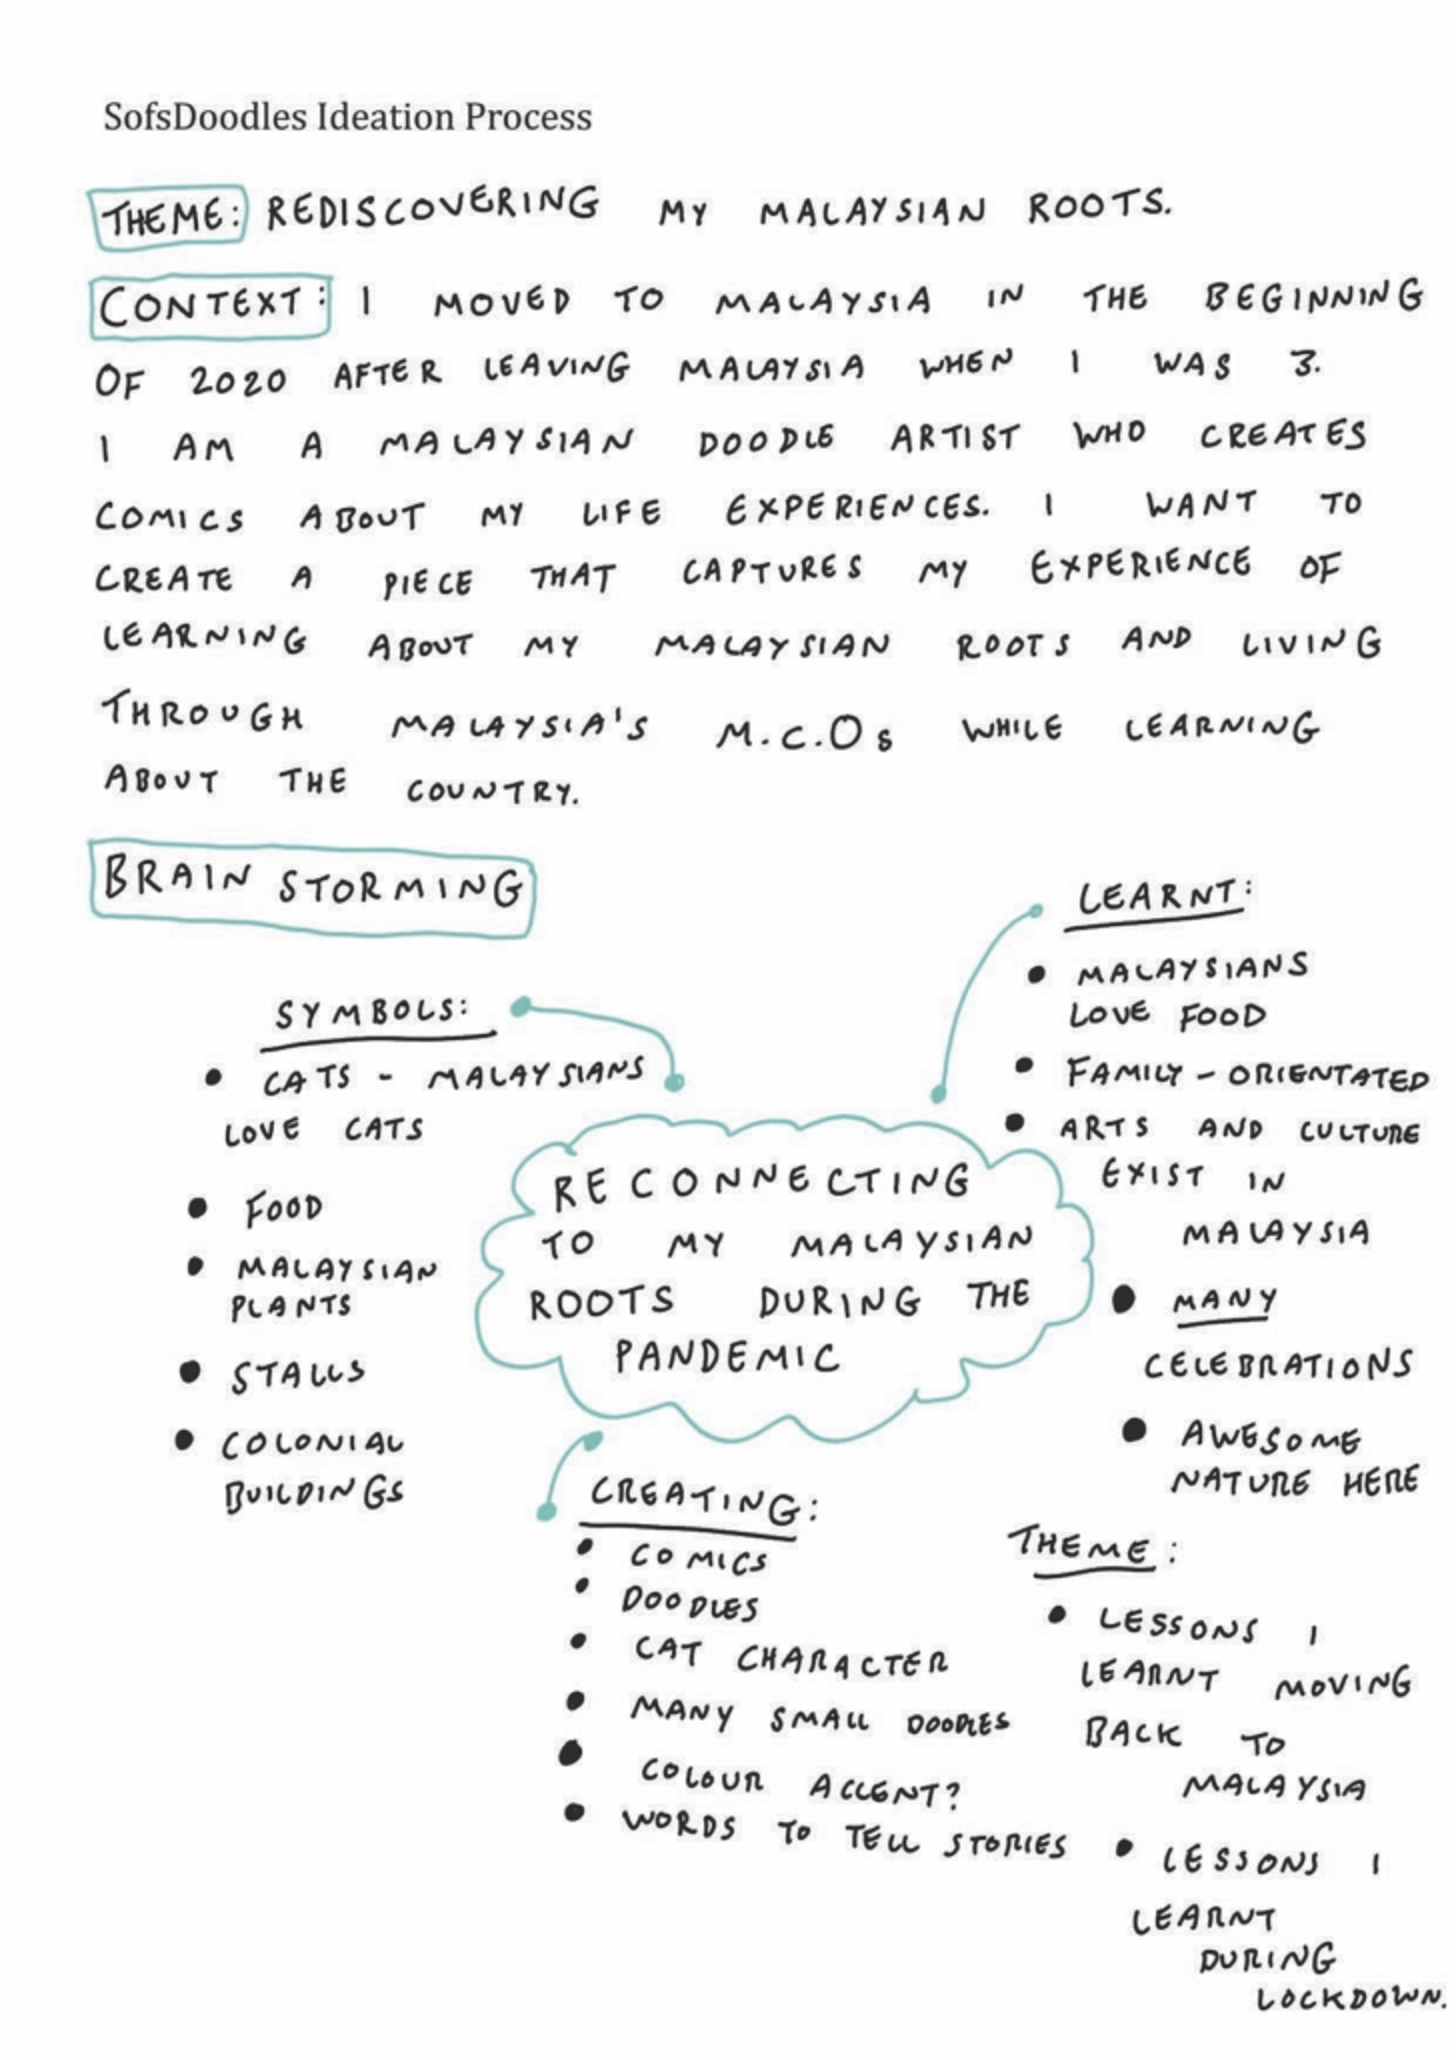 SofsDoodles Ideation Process
THEME: REDISCOVERING MY MALAYSIAN ROOTS.
CONTEXT: I MOVED TO MALAYSIA IN THE BEGINNING
OF 2020 AFTER LEAVING MALAYSIA WHEN I WAS 3.
I AM A MALAYSIAN DOODLE ARTIST WHO CREATES
COMICS ABOUT MY LIFE EXPERIENCES. I WANT TO
CREATE A PIECE THAT CAPTURES MY EXPERIENCE OF
LEARNING ABOUT MY MALAYSIAN ROOTS AND LIVING
THROUGH MALAYSIA'S M.C.Os WHILE LEARNING
ABOUT THE COUNTRY.
BRAIN STORMING
SYMBOLS:
• CATS - MALAYSIANS
LOVE CATS
• FOOD
• MALAYSIAN
PLANTS
• STALLS
• COLONIAL
BUILDINGS
RECONNECTING
TO MY MALAYSIAN
ROOTS DURING THE
PANDEMIC
LEARNT:
• MALAYSIANS
LOVE FOOD
• FAMILY-ORIENTATED
• ARTS AND CULTURE
EXIST IN
MALAYSIA
• MANY
CELEBRATIONS
• AWESOME
NATURE HERE
CREATING:
• COMICS
• DOODLES
• CAT CHARACTER
• MANY SMALL DOODLES
• COLOUR ACCENT?
• WORDS TO TELL STORIES
THEME:
• LESSONS I
LEARNT MOVING
BACK TO
MALAYSIA
• LESSONS I
LEARNT
DURING
LOCKDOWN.